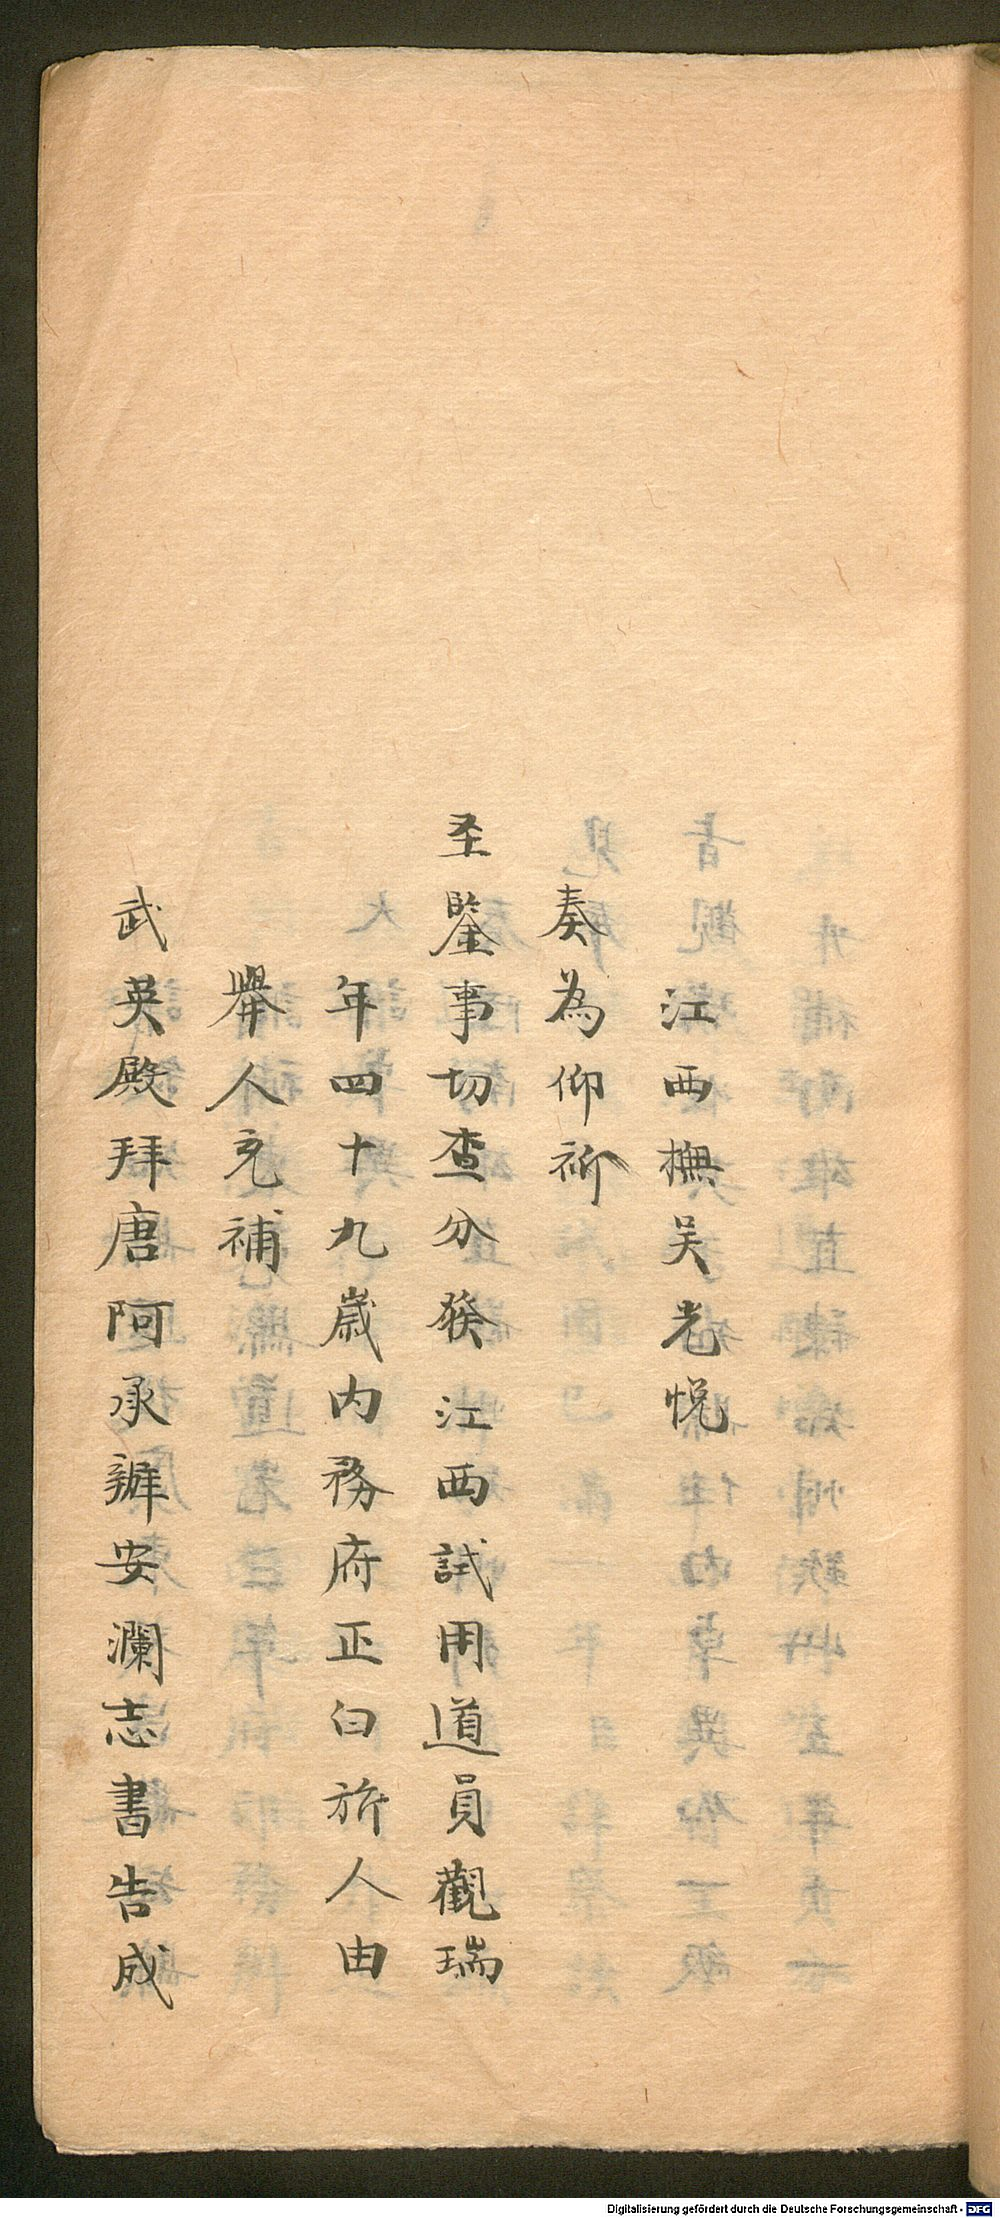 江西撫吴光悅
奏為仰祈
圣鑒事切查分發江西試用道員觀瑞
年四十九歲内務府正白旂人由
舉人充補
武英殿拜唐阿承辦安瀾志書告成
Digitalisierung gefördert durch die Deutsche Forschungsgemeinschaft - DFG